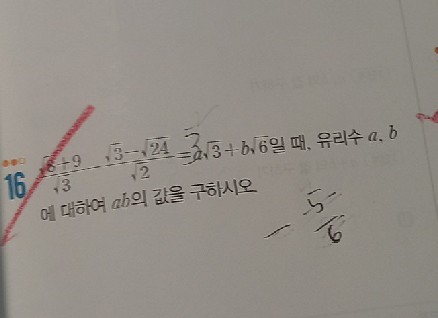 16 \frac{\sqrt{8}+9}{\sqrt{3}} - \frac{\sqrt{3}-\sqrt{24}}{\sqrt{2}} = a\sqrt{3}+b\sqrt{6}일 때, 유리수 a, b
에 대하여 ab의 값을 구하시오
3
- \frac{5}{6}